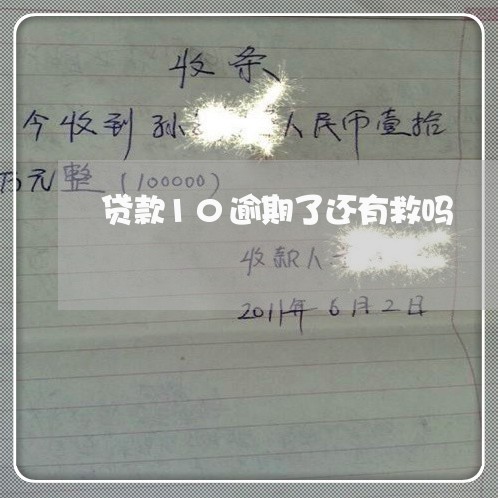 收条
今收到孙 人民币壹拾
万元整（100000）
贷款10逾期了还有救吗
收款人
2011年6月2日